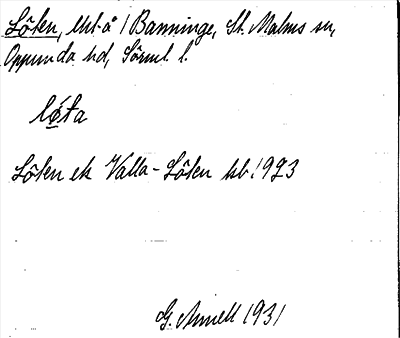 Löten, ut-å / Banninge, St. Malms sn,
Oppunda hd, Sörml. l.
lǿta
Löten ek Valla-Löten kb. 1923
G. Annell 1931